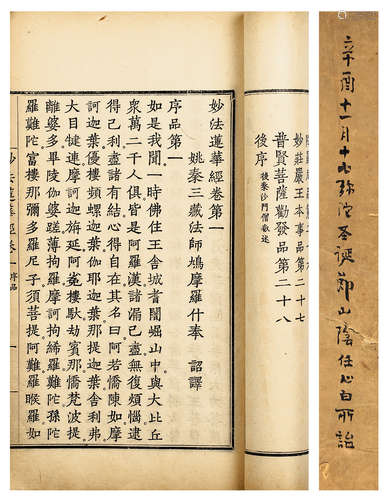 辛酉十一月十七弥陀圣誕郑山陰任心白所詒
妙莊嚴王本事品第二十七
普賢菩薩勸發品第二十八
後序 後秦沙門僧叡述
妙法蓮華經卷第一
姚秦三藏法師鳩摩羅什奉 詔譯
序品第一
如是我聞一時佛住王舍城耆闍崛山中與大比丘
衆萬二千人俱皆是阿羅漢諸漏已盡無復煩惱逮
得己利盡諸有結心得自在其名曰阿若憍陳如摩
訶迦葉優樓頻螺迦葉伽耶迦葉那提迦葉舍利弗
大目犍連摩訶迦旃延阿㝹樓馱劫賓那憍梵波提
離婆多畢陵伽婆蹉薄拘羅摩訶拘絺羅難陀孫陀
羅難陀富樓那彌多羅尼子須菩提阿難羅睺羅如
序品 一